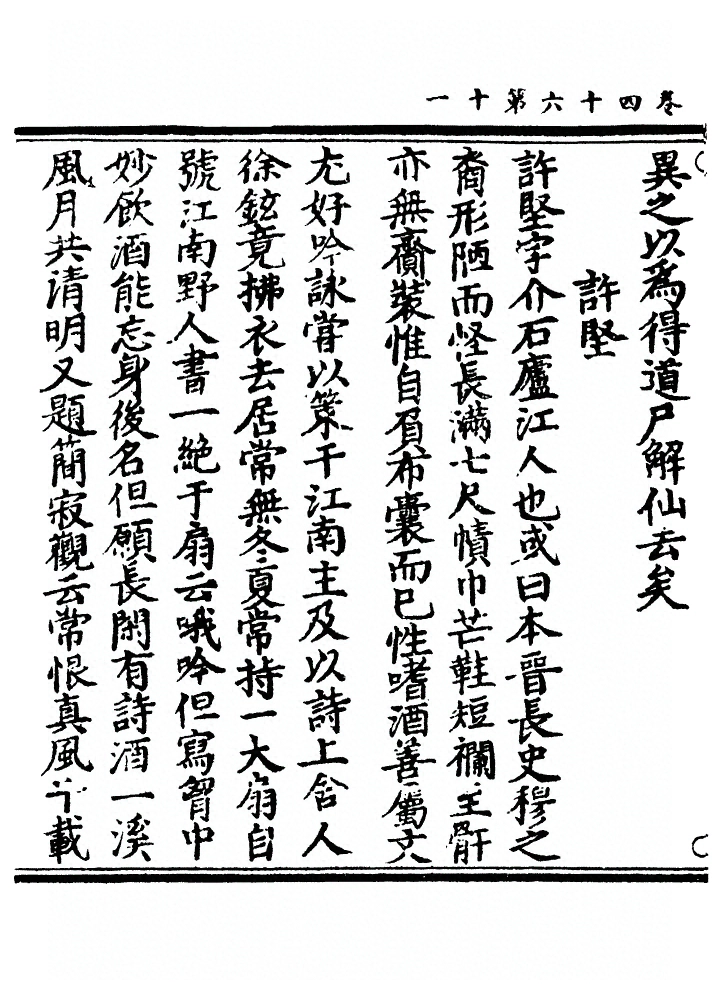 卷四十六第十一
異之以爲得道尸解仙去矣
許堅
許堅字介石廬江人也或曰本晉長史穆之
裔形陋而怪長滿七尺幘巾芒鞋短襴至骭
亦無齎裝惟自負布囊而已性嗜酒善屬文
尤好吟詠嘗以策干江南主及以詩上舍人
徐鉉竟拂衣去居常無冬夏常持一大扇自
號江南野人書一絶于扇云哦吟但寫胷中
妙飲酒能忘身後名但願長閑有詩酒一溪
風月共清明又題簡寂觀云常恨真風千載